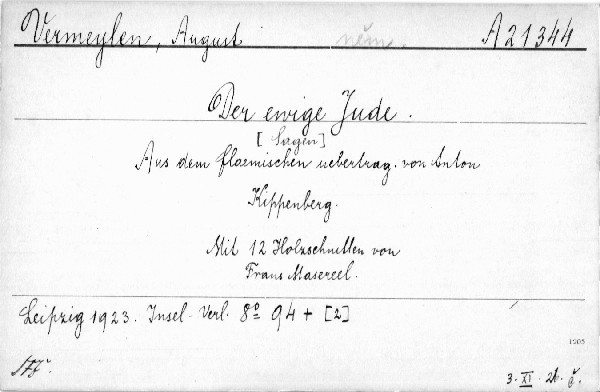 Vermeylen, August něm. A 21344
Der ewige Jude.
[Sagen]
Aus dem flaemischen uebertrag. von Anton
Kippenberg.
Mit 12 Holzschnitten von
Frans Masereel.
Leipzig 1923. Insel-Verl. 8º 94 + [2]
1905
3. XI. 26. J.